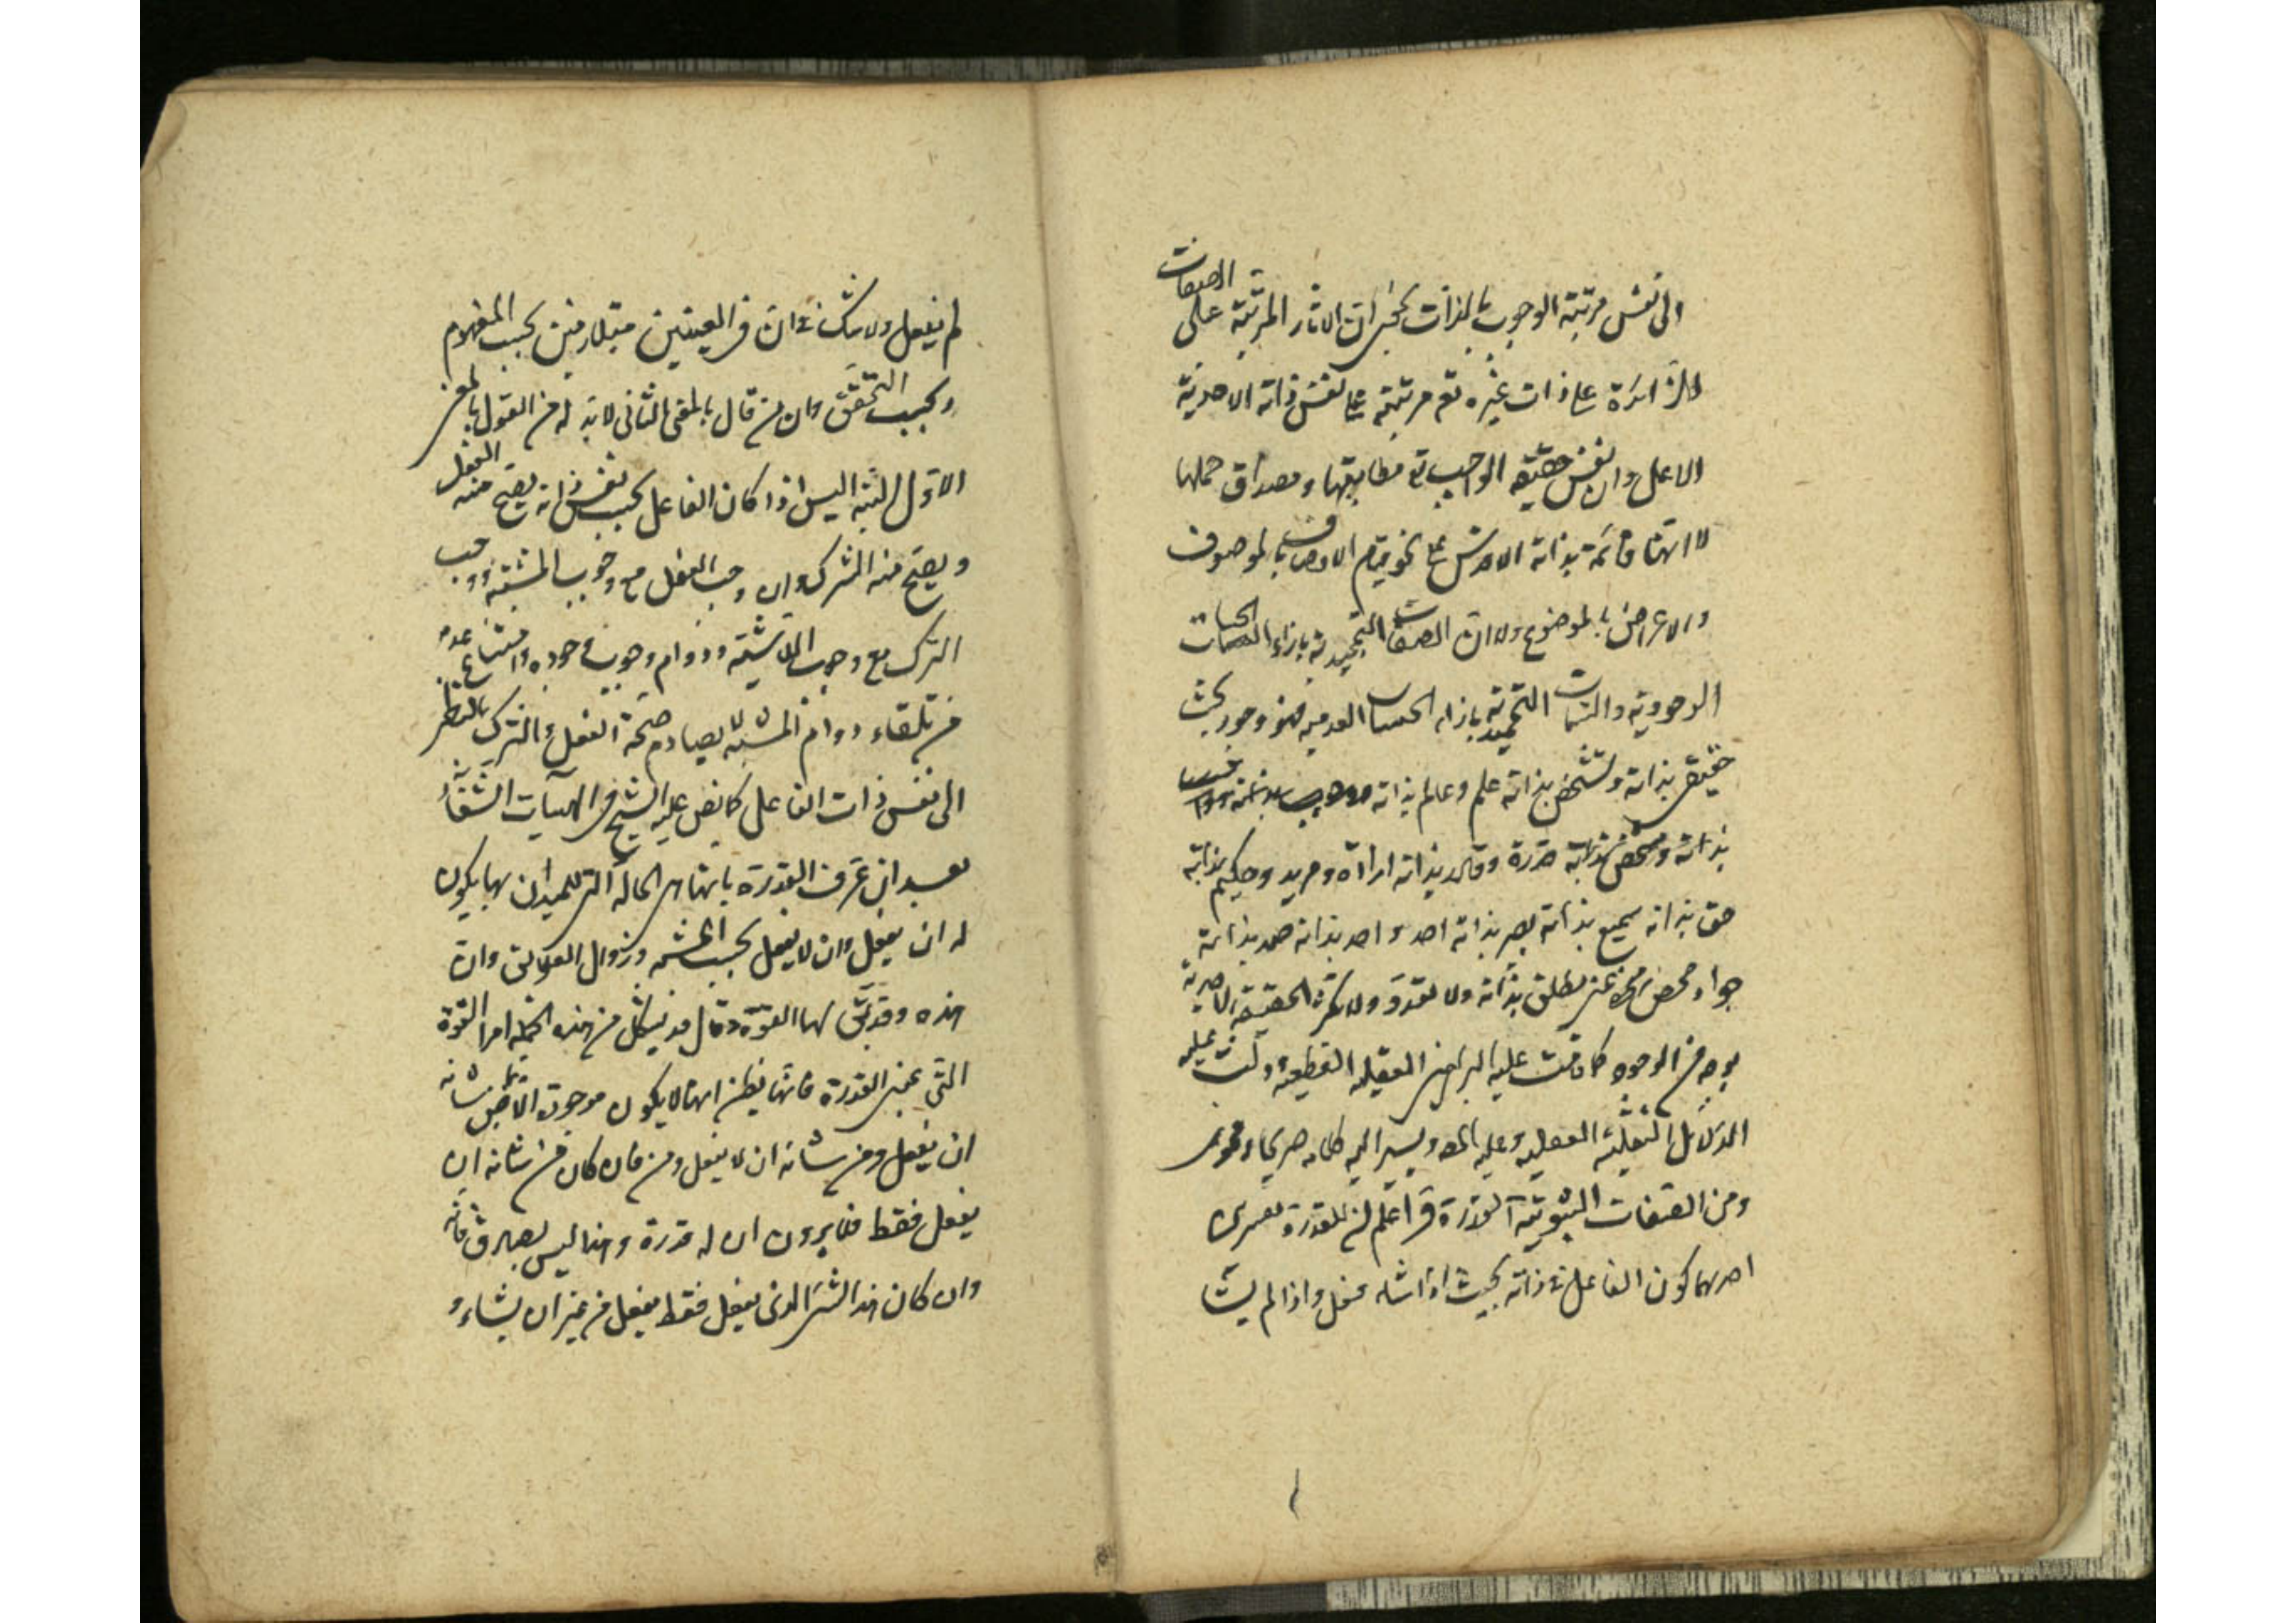 والى نفس مرتبة الوجوب بالذات بمعنى ان الاثار المرتبة على الصفات
الزائدة على ذات غيره تعالى مرتبة على نفس ذاته الاحدية
الاعلى وان نفس حقيقة الواجب تعالى مطابقها ومصداق حملها
لا انها قائمة بذاته الاقدس على نحو قيام الاوصاف بالموصوف
والاعراض بالموضوع ولا ان الصفات التمجيدية بازاء الحسيات
الوجودية والسمات التحميدية بازاء الحسيات العدمية فهو وجود بحت
حقيقى بذاته وتشخص بذاته علم وعالم بذاته
بذاته ومحض بذاته قدرة وقادر بذاته ارادة ومريد وحكيم بذاته
حق بذاته سميع بذاته بصير بذاته احد واحد بذاته صمد بذاته
جواد محض غنى مطلق بذاته ولا تعدد ولا تكثر لحقيقة الاحدية
بوجه من الوجوه كما قامت عليه البراهين العقلية القطعية ودلت عليه
الدلائل النقلية ويشير اليه كلامه صريحا وفحوى
ومن الصفات الثبوتية القدرة فاعلم ان للقدرة تفسيرين
احدهما كون الفاعل فى ذاته بحيث اذا شاء فعل واذا لم يشا
لم يفعل ولا شك فى ان المعنيين متلازمين بحسب المفهوم
وبحسب التحقق وان من قال بالمعنى الثانى لا بد له من القول بالمعنى
الاول البتة اليس اذا كان الفاعل بحسب نفس ذاته يصح منه الفعل
ويصح منه الترك وان وجب الفعل مع وجوب المشية ووجب
الترك مع وجوب اللامشية ودوام وجوب وجوده وامتناع عدمه
من تلقاء دوام المشية لا يصادم صحة الفعل والترك بالنظر
الى نفس ذات الفاعل كما نص عليه الشيخ فى الهيات الشفاء
بعد ان عرف القدرة بانها هى الحالة التى للحيوان بها يكون
له ان يفعل وان لا يفعل بحسب المشية وزوال العوائق وان
هذه وقد يق لها القوة وقال قد يشكل من هذه الجملة امر القوة
التى بمعنى القدرة فانها يظن انها لا يكون موجودة الا لما من شانه
ان يفعل ومن شانه ان لا يفعل ومن فان كان من شانه ان
يفعل فقط فلا يرون ان له قدرة وهذا ليس بصادق فانه
وان كان هذا الشئ الذى يفعل فقط يفعل من غير ان يشاء و